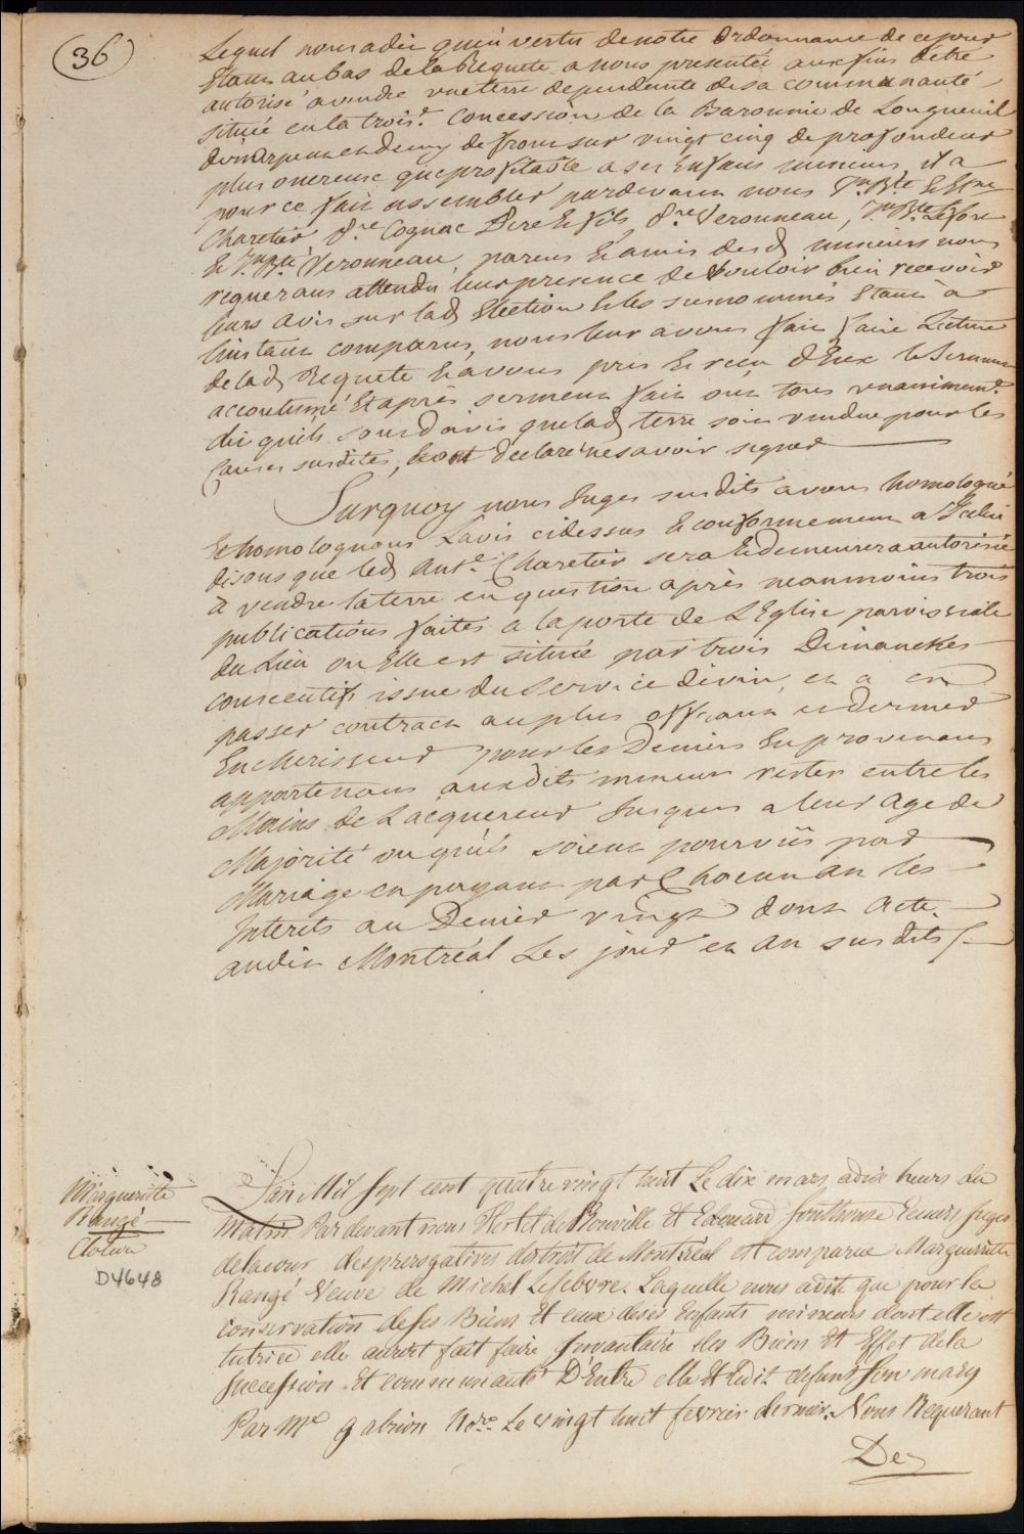 36
Lequel nous a dit quen vertu de notre Ordonnance de ce jour
Etant au bas de la Requete a nous presentée aux fins detre
autorisé a vendre une terre dependente de sa communauté
située en la trois.e Concession de la Baronnie de Longueuil
dun arpent et demy de front sur vingt cinq de profondeur
plus onereuse que profitable a ses Enfans mineurs, il a
pour ce fait assembler pardevant nous Jn Bte &
Charetier, Cognac Pere & fils, Veronneau, Jn Bte Lefbre
& Jn Bte Veronneau, parens & amis desd mineurs nous
requerans attendu leur presence de Vouloir bien recevoir
leurs avis sur lad Election & les susnommés Etant a
linstant comparus, nous leur avons fait faire Lecture
de lad Requete & avons pris & reçu d'Eux le Serment
accoutumé Et après serment fait ont tous unanimemt
dit quils sont davis que lad terre soit vendue pour les
Causes susdites, & ont declaré ne savoir signer
Surquoy nous Juges susdits avons homologué
& homologuons Lavis cidessus & conformement a Icelui
disons que led Ant.e Charetier sera & demeurera autorisé
a vendre la terre en question après neanmoins trois
publications faites a la porte de L'Eglise paroissiale
du Lieu ou Elle est située par trois Dimanches
consecutifs issue du Service divin, et a en
passer contract au plus offrant et dernier
Encherisseur pour les Deniers En provenant
appartenans auxdits mineurs rester entre les
Mains de Lacquereur Jusques a leur age de
Majorité ou quils soient pourvûs par
Mariage en payant par Chacun an les
Interets au Denier vingt dont Acte.
audit Montréal Les jour et an susdits
Marguerite
Rangé
Cloture
D4648
L'an Mil Sept cent quatre vingt huit Le dix mars a dix heures du
Matin Par devant nous Hertel de Rouville Et Edouard Southouse Ecuiers Juges
de la cour des prerogatives district de Montréal est comparue Marguerite
Rangé Veuve de Michel Lefebvre. Laquelle nous a dit que pour la
conservation de ses Biens Et ceux de ses Enfants mineurs dont elle est
tutrice elle auroit fait faire Inventaire des Biens Et Effet de la
Succession Et communauté D'Entre elle Et ledit defunt son mary
Par Me Gabrion Nore. Le vingt huit fevrier dernier. Nous Requerant
De